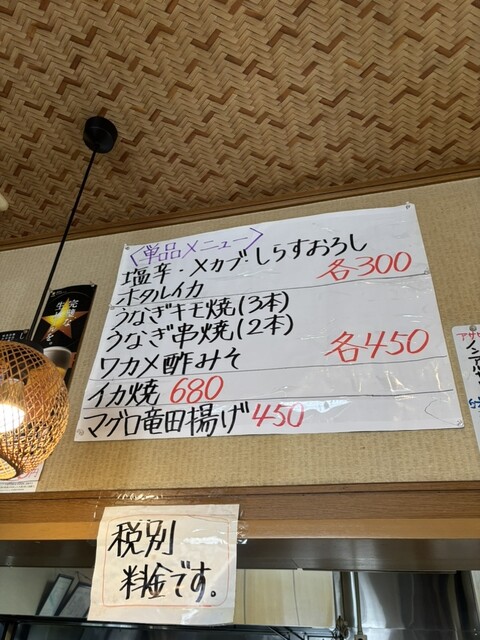 〈単品メニュー〉
塩辛・メカブ・しらすおろし
各300
ホタルイカ
うなぎキモ焼(3本)
うなぎ串焼(2本)
ワカメ酢みそ
各450
イカ焼 680
マグロ竜田揚げ 450
税別
料金です。